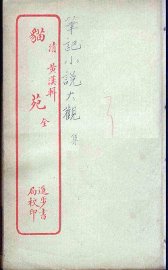 筆記小說大觀
集
清 黄漢輯
貓苑 全
進步書
局校印